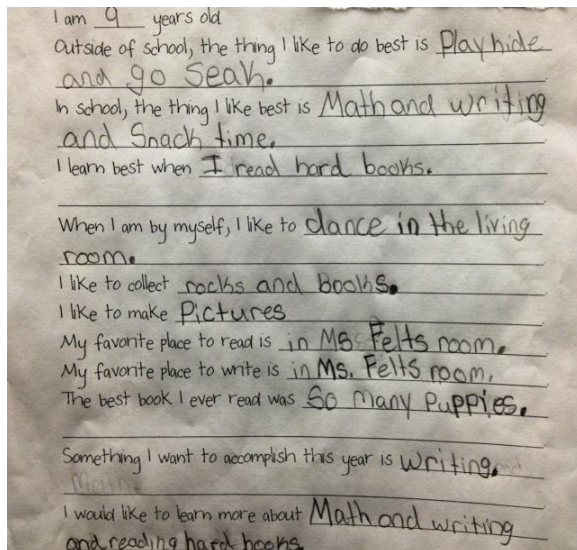 I am 9 years old
Outside of school, the thing I like to do best is Play hide
and go Seak.
In school, the thing I like best is Math and writing
and Snack time.
I learn best when I read hard books.
When I am by myself, I like to dance in the living
room.
I like to collect rocks and books.
I like to make Pictures
My favorite place to read is in Ms Felts room.
My favorite place to write is in Ms. Felts room.
The best book I ever read was So Many Puppies.
Something I want to accomplish this year is writing. and
Math.
I would like to learn more about Math and writing
and reading hard books